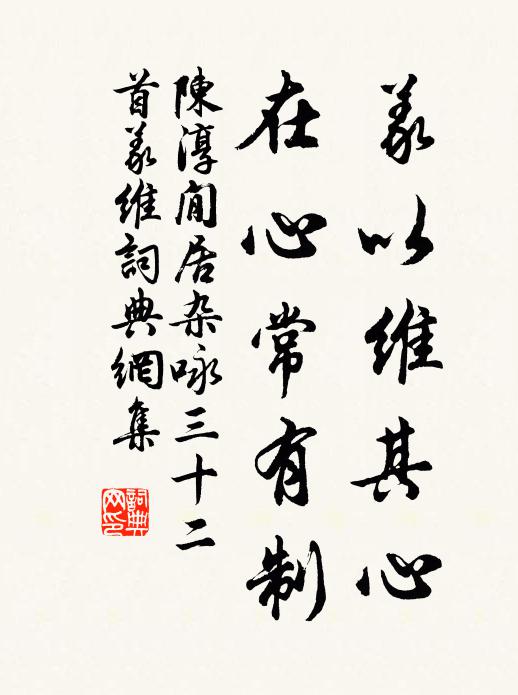 義以維其心
在心常有制
陳淳閒居杂咏三十二
首義維詞典網集
詞典网印